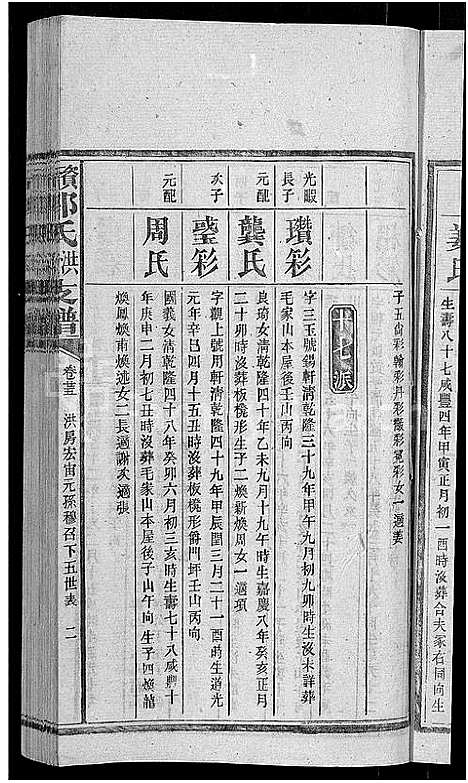 姜氏
生壽八十七咸豐四年甲寅正月初一酉時沒葬合夫冢右同向生
子五尙彩翰彩丹彩 彩 彩女一適姜
十七派
光暇長子
瓚彩
字三玉號錫軒清乾隆三十九年甲午九月初九卯時生沒未詳葬
毛家山本屋後壬山丙向
元配
龔氏
良琦女清乾隆四十年乙未九月十九午時生嘉慶八年癸亥正月
二十卯時沒葬板櫈形生子二煥新煥周女一適項
次子
瑬彩
字觀上號用軒清乾隆四十九年甲辰閏三月二十一酉時生道光
元年辛巳四月十五丑時沒葬板櫈形爵門坪壬山丙向
元配
周氏
國義女清乾隆四十八年癸卯六月初三亥時生壽七十八咸豐十
年庚申二月初七丑時沒葬毛家山本屋後子山午向生子四煥韶
煥鳳煥甫煥述女二長適謝次適張
鄒氏洪支譜
卷三 洪房宏宙元孫穆召下五世表 二